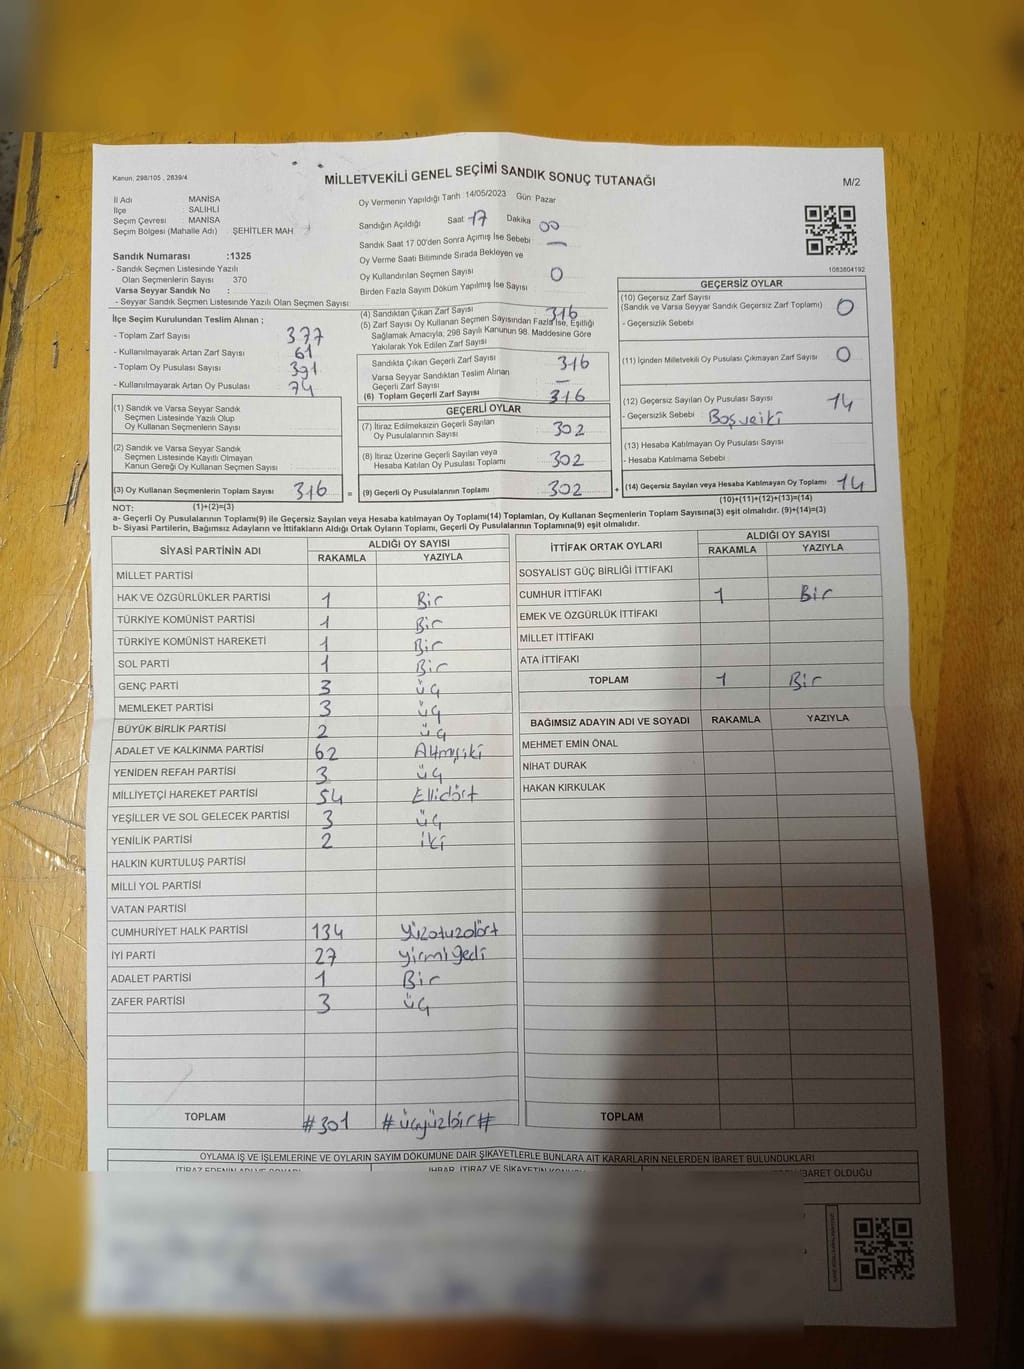 Kanun, 298/105 , 2839/4
MİLLETVEKİLİ GENEL SEÇİMİ SANDIK SONUÇ TUTANAĞI
M/2
İl Adı MANİSA
İlçe : SALİHLİ
Seçim Çevresi MANİSA
Seçim Bölgesi (Mahalle Adı) ŞEHİTLER MAH
Sandık Numarası :1325
- Sandık Seçmen Listesinde Yazılı
Olan Seçmenlerin Sayısı 370
Varsa Seyyar Sandık No :
- Seyyar Sandık Seçmen Listesinde Yazılı Olan Seçmen Sayısı
Oy Vermenin Yapıldığı Tarih 14/05/2023 Gün Pazar
Sandığın Açıldığı Saat 17 Dakika 00
Sandık Saat 17 00'den Sonra Açımış İse Sebebi —
Oy Verme Saati Bitiminde Sırada Bekleyen ve
Oy Kullandırılan Seçmen Sayısı 0
Birden Fazla Sayım Döküm Yapılmış İse Sayısı
1083804192
İlçe Seçim Kurulundan Teslim Alınan ;
- Toplam Zarf Sayısı 377
- Kullanılmayarak Artan Zarf Sayısı 61
- Toplam Oy Pusulası Sayısı 391
- Kullanılmayarak Artan Oy Pusulası 74
(1) Sandık ve Varsa Seyyar Sandık
Seçmen Listesinde Yazılı Olup
Oy Kullanan Seçmenlerin Sayısı
(2) Sandık ve Varsa Seyyar Sandık
Seçmen Listesinde Kayıtlı Olmayan
Kanun Gereği Oy Kullanan Seçmen Sayısı
(3) Oy Kullanan Seçmenlerin Toplam Sayısı 316 =
(4) Sandıktan Çıkan Zarf Sayısı 316
(5) Zarf Sayısı Oy Kullanan Seçmen Sayısından Fazla İse, Eşitliği
Sağlamak Amacıyla, 298 Sayılı Kanunun 98. Maddesine Göre
Yakılarak Yok Edilen Zarf Sayısı
Sandıkta Çıkan Geçerli Zarf Sayısı 316
Varsa Seyyar Sandıktan Teslim Alınan
Geçerli Zarf Sayısı —
(6) Toplam Geçerli Zarf Sayısı 316
GEÇERLİ OYLAR
(7) İtiraz Edilmeksizin Geçerli Sayılan
Oy Pusulalarının Sayısı 302
(8) İtiraz Üzerine Geçerli Sayılan veya
Hesaba Katılan Oy Pusulası Toplamı 302
(9) Geçerli Oy Pusulalarının Toplamı 302 +
GEÇERSİZ OYLAR
(10) Geçersiz Zarf Sayısı
(Sandık ve Varsa Seyyar Sandık Geçersiz Zarf Toplamı) 0
- Geçersizlik Sebebi
(11) İçinden Milletvekili Oy Pusulası Çıkmayan Zarf Sayısı 0
(12) Geçersiz Sayılan Oy Pusulası Sayısı 14
- Geçersizlik Sebebi
(13) Hesaba Katılmayan Oy Pusulası Sayısı
- Hesaba Katılmama Sebebi
(14) Geçersiz Sayılan veya Hesaba Katılmayan Oy Toplamı 14
NOT: (1)+(2)=(3)
(10)+(11)+(12)+(13)=(14)
a- Geçerli Oy Pusulalarının Toplamı(9) ile Geçersiz Sayılan veya Hesaba katılmayan Oy Toplamı(14) Toplamları, Oy Kullanan Seçmenlerin Toplam Sayısına(3) eşit olmalıdır. (9)+(14)=(3)
b- Siyasi Partilerin, Bağımsız Adayların ve İttifakların Aldığı Ortak Oyların Toplamı, Geçerli Oy Pusulalarının Toplamına(9) eşit olmalıdır.
SİYASİ PARTİNİN ADI ALDIĞI OY SAYISI
RAKAMLA YAZIYLA
MİLLET PARTİSİ
HAK VE ÖZGÜRLÜKLER PARTİSİ 1 Bir
TÜRKİYE KOMÜNİST PARTİSİ 1 Bir
TÜRKİYE KOMÜNİST HAREKETİ 1 Bir
SOL PARTİ 1 Bir
GENÇ PARTİ 3 üç
MEMLEKET PARTİSİ 3 üç
BÜYÜK BİRLİK PARTİSİ 2 üç
ADALET VE KALKINMA PARTİSİ 62 Altmışiki
YENİDEN REFAH PARTİSİ 3 üç
MİLLİYETÇİ HAREKET PARTİSİ 54 Ellidört
YEŞİLLER VE SOL GELECEK PARTİSİ 3 üç
YENİLİK PARTİSİ 2 iki
HALKIN KURTULUŞ PARTİSİ
MİLLİ YOL PARTİSİ
VATAN PARTİSİ
CUMHURİYET HALK PARTİSİ 134 yüzotuzdört
İYİ PARTİ 27 yirmiyedi
ADALET PARTİSİ 1 Bir
ZAFER PARTİSİ 3 üç
TOPLAM #301 #üçyüzbir#
İTTİFAK ORTAK OYLARI ALDIĞI OY SAYISI
RAKAMLA YAZIYLA
SOSYALİST GÜÇ BİRLİĞİ İTTİFAKI
CUMHUR İTTİFAKI 1 Bir
EMEK VE ÖZGÜRLÜK İTTİFAKI
MİLLET İTTİFAKI
ATA İTTİFAKI
TOPLAM 1 Bir
BAĞIMSIZ ADAYIN ADI VE SOYADI RAKAMLA YAZIYLA
MEHMET EMİN ÖNAL
NİHAT DURAK
HAKAN KIRKULAK
TOPLAM
OYLAMA İŞ VE İŞLEMLERİNE VE OYLARIN SAYIM DÖKÜMÜNE DAİR ŞİKAYETLERLE BUNLARA AİT KARARLARIN NELERDEN İBARET BULUNDUKLARI
İHBAR, İTİRAZ VE ŞİKAYETİN
İBARET OLDUĞU